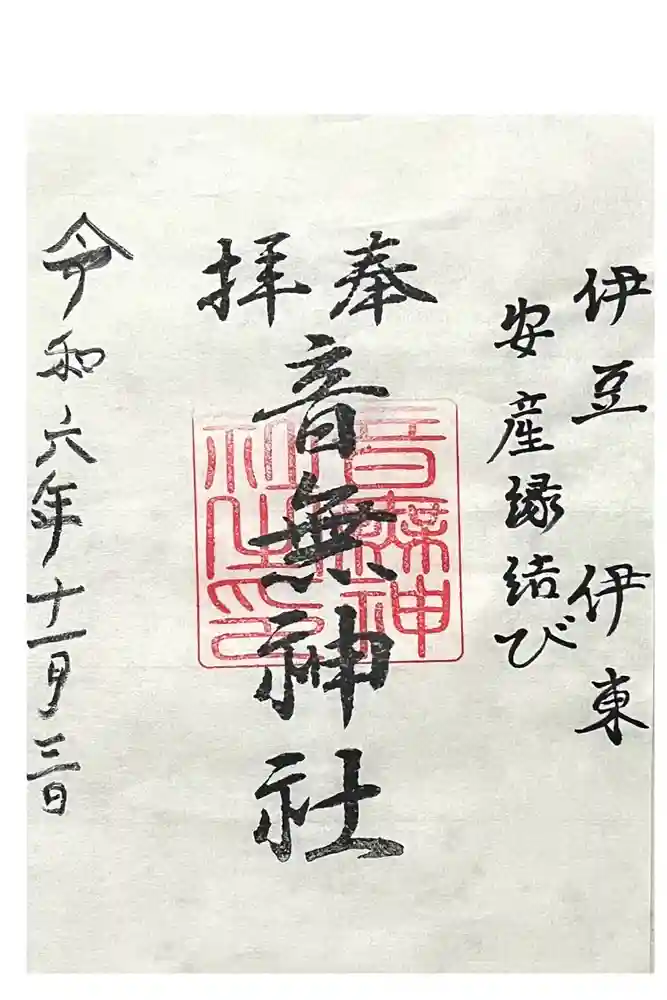 伊豆 伊東
安産縁結び
奉拝
音無神社
音無神社之印
令和六年十一月三日